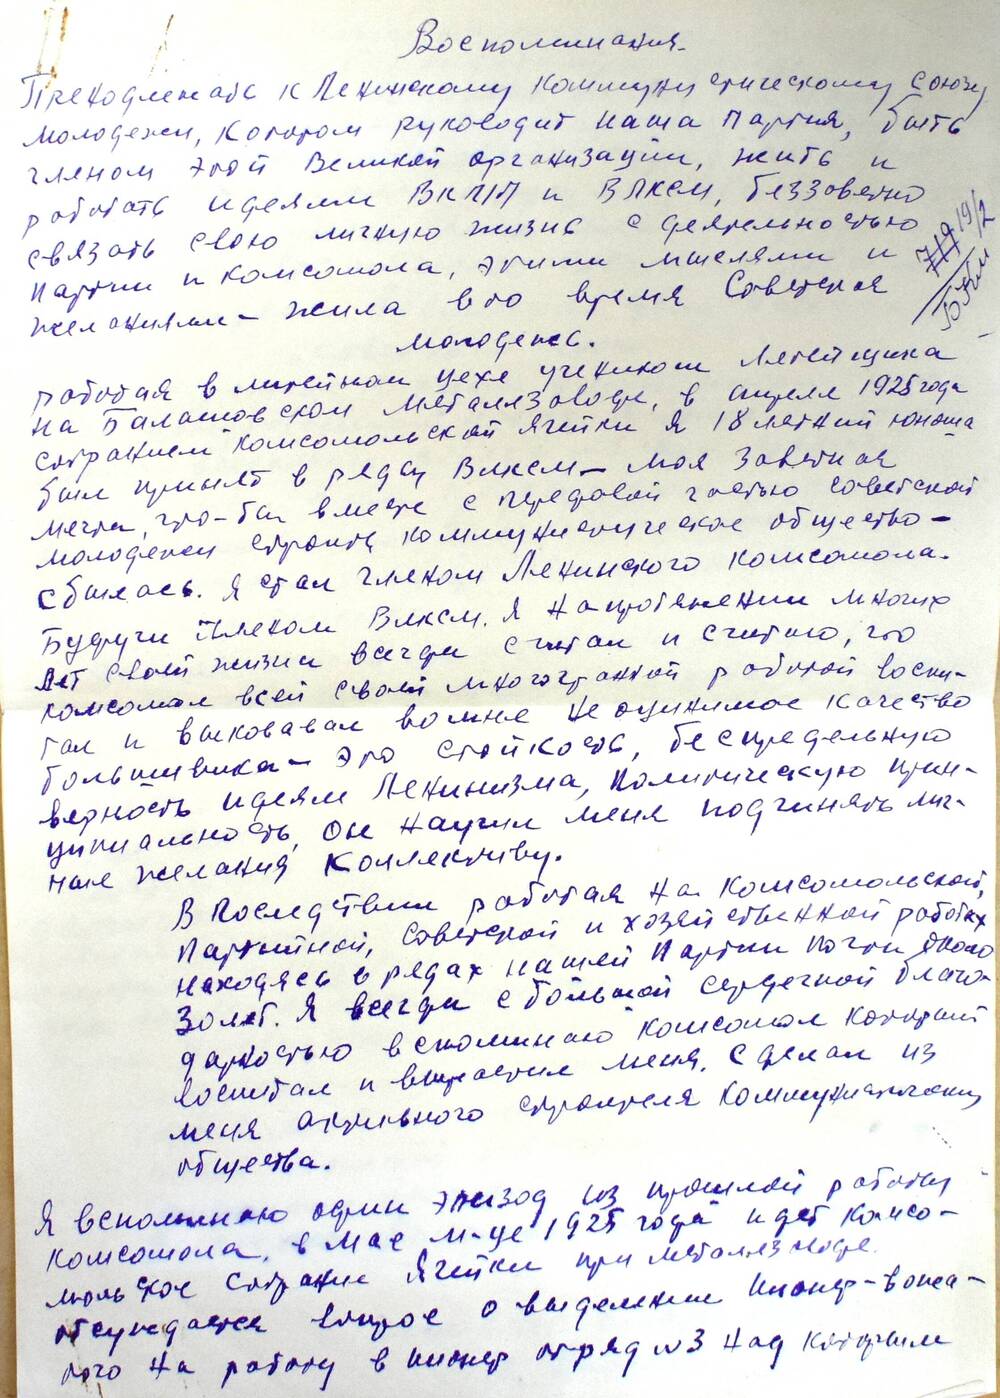 Воспоминания.
Принадлежать к Ленинскому Коммунистическому Союзу
молодежи, котором руководит наша Партия, быть
членом этой Великой организации, жить и
работать идеями ВКПП и ВЛКСМ, беззаветно
связать свою личную жизнь с деятельностью
Партии и комсомола, этими мыслями и
желаниями – жила в то время Советская
молодежь.
19/2
работая в литейном цехе учеником литейщика
на Балашовском металлзаводе, в апреле 1925 года
собранием комсомольской ячейки я 18 летний юноша
был принят в ряды ВЛКСМ – моя заветная
мечта, что-бы вместе с передовой частью советской
молодежи строить коммунистическое общество –
сбылась. Я стал членом Ленинского комсомола.
Будучи членом ВЛКСМ. я на протяжении многих
лет своей жизни всегда считал и считаю, что
комсомол всей своей многогранной работой воспи-
тал и выковавал во мне неоценимое качество
большевика – это стойкость, беспредельную
верность идеям Ленинизма, политическую прин-
ципиальность, он научил меня подчинять лич-
ные желания коллективу.
В последствии работая на комсомольской,
Партийной, советской и хозяйственной работах
находясь в рядах нашей Партии почти около
30 лет. Я всегда с большой сердечной благо-
дарностью вспоминаю комсомол который
воспитал и вырастил меня, сделал из
меня активного строителя коммунистическо
общества.
Я вспоминаю один эпизод из прошлой работы
комсомола. в мае м-це 1925 года идет комсо-
мольское собрание ячейки при металлзаводе.
обсуждается вопрос о выделении пионер-вожа-
того на работу в пионер отряд №3 над которым